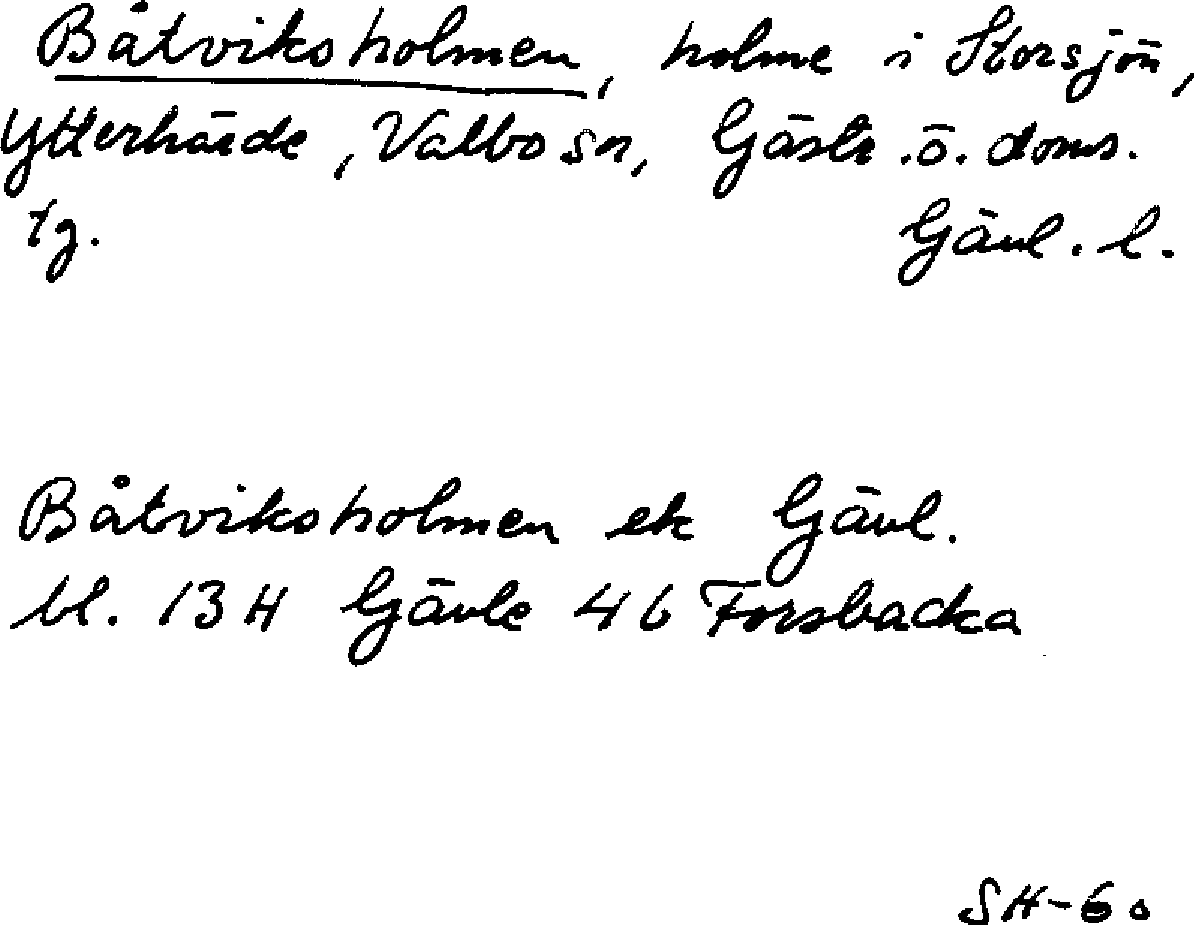 Båtviksholmen, holme i Storsjön,
Ytterhärde, Valbo sn, Gästr. ö. doms.
tg. Gävl. l.
Båtviksholmen ek Gävl.
bl. 13 H Gävle 4 b Forsbacka
SH-60